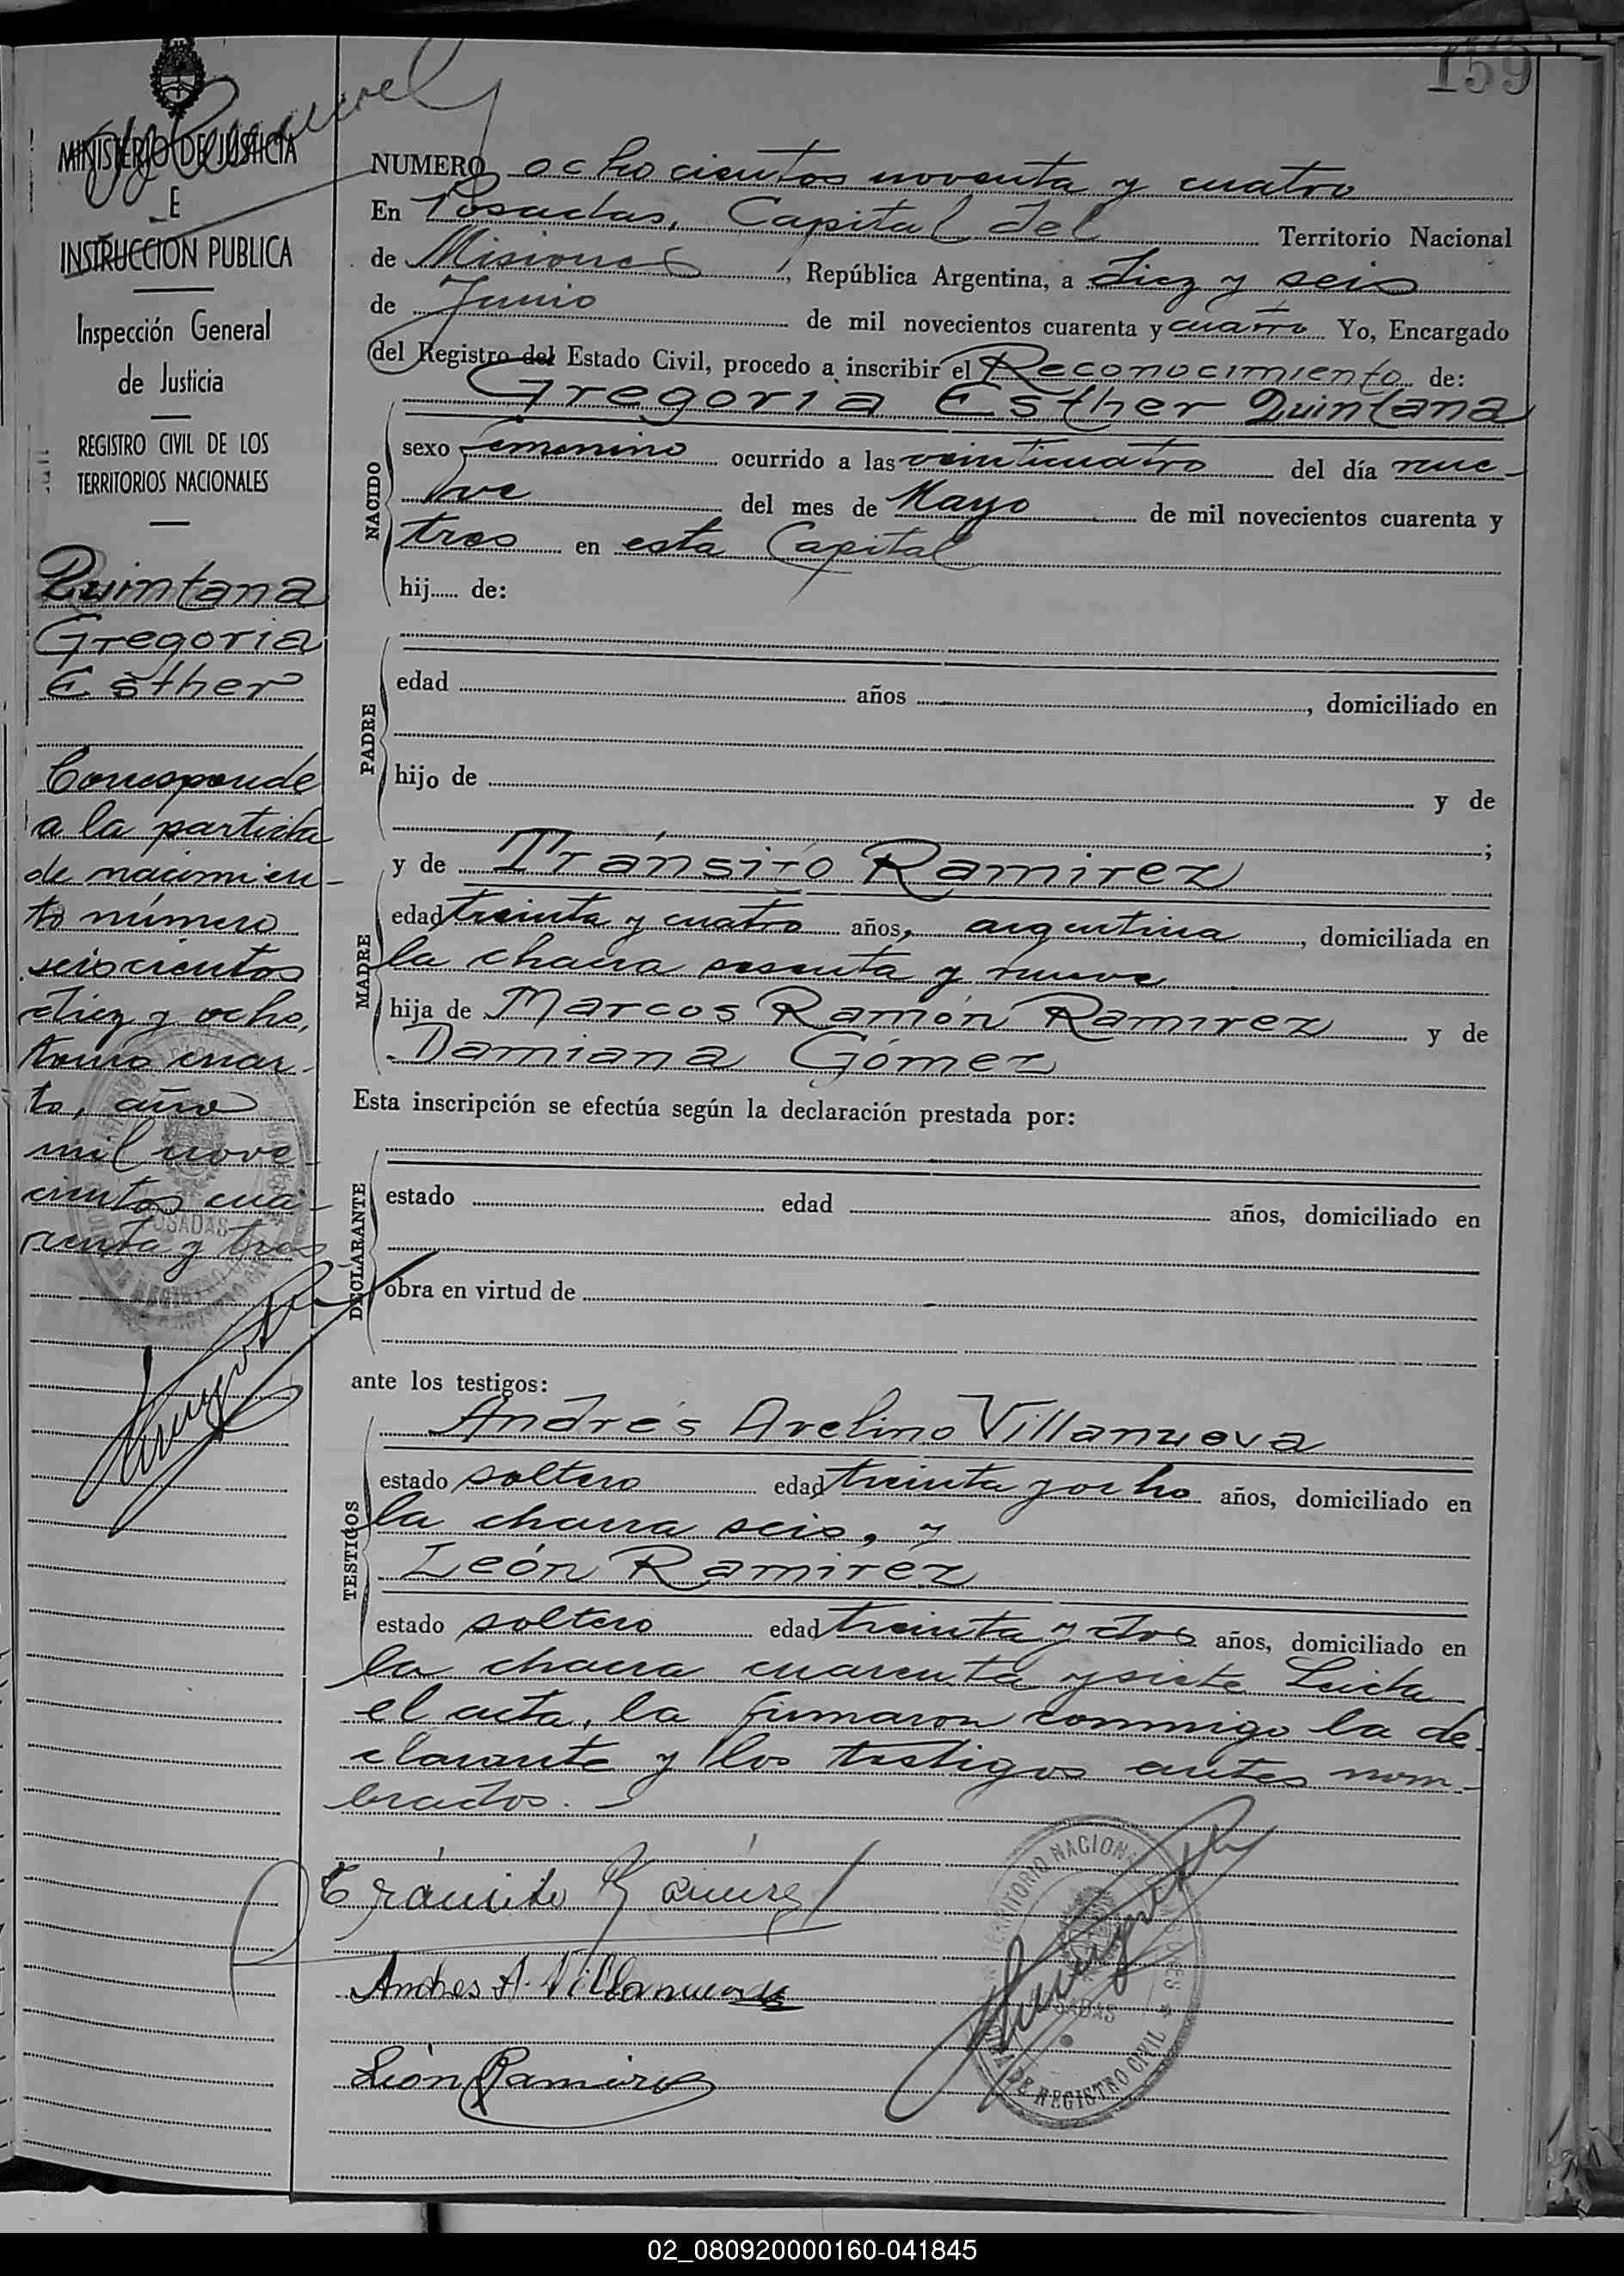 159
MINISTERIO DE JUSTICIA
E
INSTRUCCION PUBLICA
Inspección General
de Justicia
REGISTRO CIVIL DE LOS
TERRITORIOS NACIONALES
Quintana
Gregoria
Esther
Corresponde
a la partida
de nacimien-
to número
seiscientos
diez y ocho,
tomo cuar-
to, año
mil nove-
cientos cua-
renta y tres
NUMERO ochocientos noventa y cuatro
En Posadas, Capital del Territorio Nacional
de Misiones, República Argentina, a diez y seis
de Junio de mil novecientos cuarenta y cuatro Yo, Encargado
del Registro del Estado Civil, procedo a inscribir el Reconocimiento de:
Gregoria Esther Quintana
NACIDO
sexo femenino ocurrido a las veinticuatro del día nue-
ve del mes de Mayo de mil novecientos cuarenta y
tres en esta Capital
hij..... de:
PADRE
edad años , domiciliado en
hijo de y de
;
y de Tránsito Ramirez
MADRE
edad treinta y cuatro años, argentina, domiciliada en
la chacra sesenta y nueve
hija de Marcos Ramón Ramirez y de
Damiana Gómez
Esta inscripción se efectúa según la declaración prestada por:
DECLARANTE
estado edad años, domiciliado en
obra en virtud de
ante los testigos:
TESTIGOS
Andrés Avelino Villanueva
estado soltero edad treinta y ocho años, domiciliado en
la chacra seis, y
León Ramirez
estado soltero edad treinta y dos años, domiciliado en
la chacra cuarenta y siete Leida
el acta, la firmaron conmigo la de-
clarante y los testigos antes nom-
brados.
Tránsito Ramirez
Andres A. Villanueva
León Ramirez
TERRITORIO NACIONAL DE MISIONES
POSADAS
OFICINA DE REGISTRO CIVIL
02_080920000160-041845